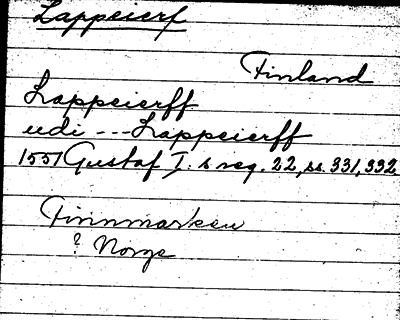 Lappeierf
Finland
Lappeierff
udi --- Lappeierff
1551 Gustaf I:s reg. 22, ss. 331, 332
Finnmarken
? Norge